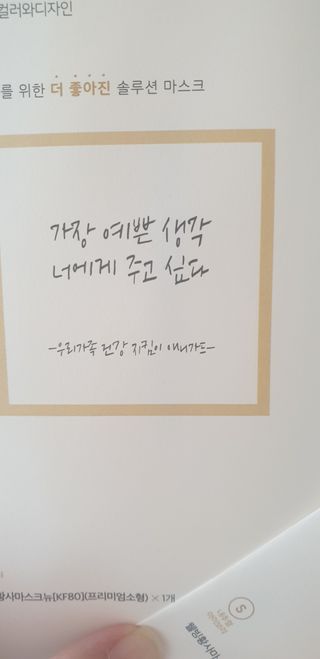 컬러와디자인
를 위한 더 좋아진 솔루션 마스크
가장 예쁜 생각
너에게 주고 싶다
-우리가족 건강 지킴이 애니가드-
황사마스크뉴[KF80](프리미엄소형) × 1개
S
웰빙황사마